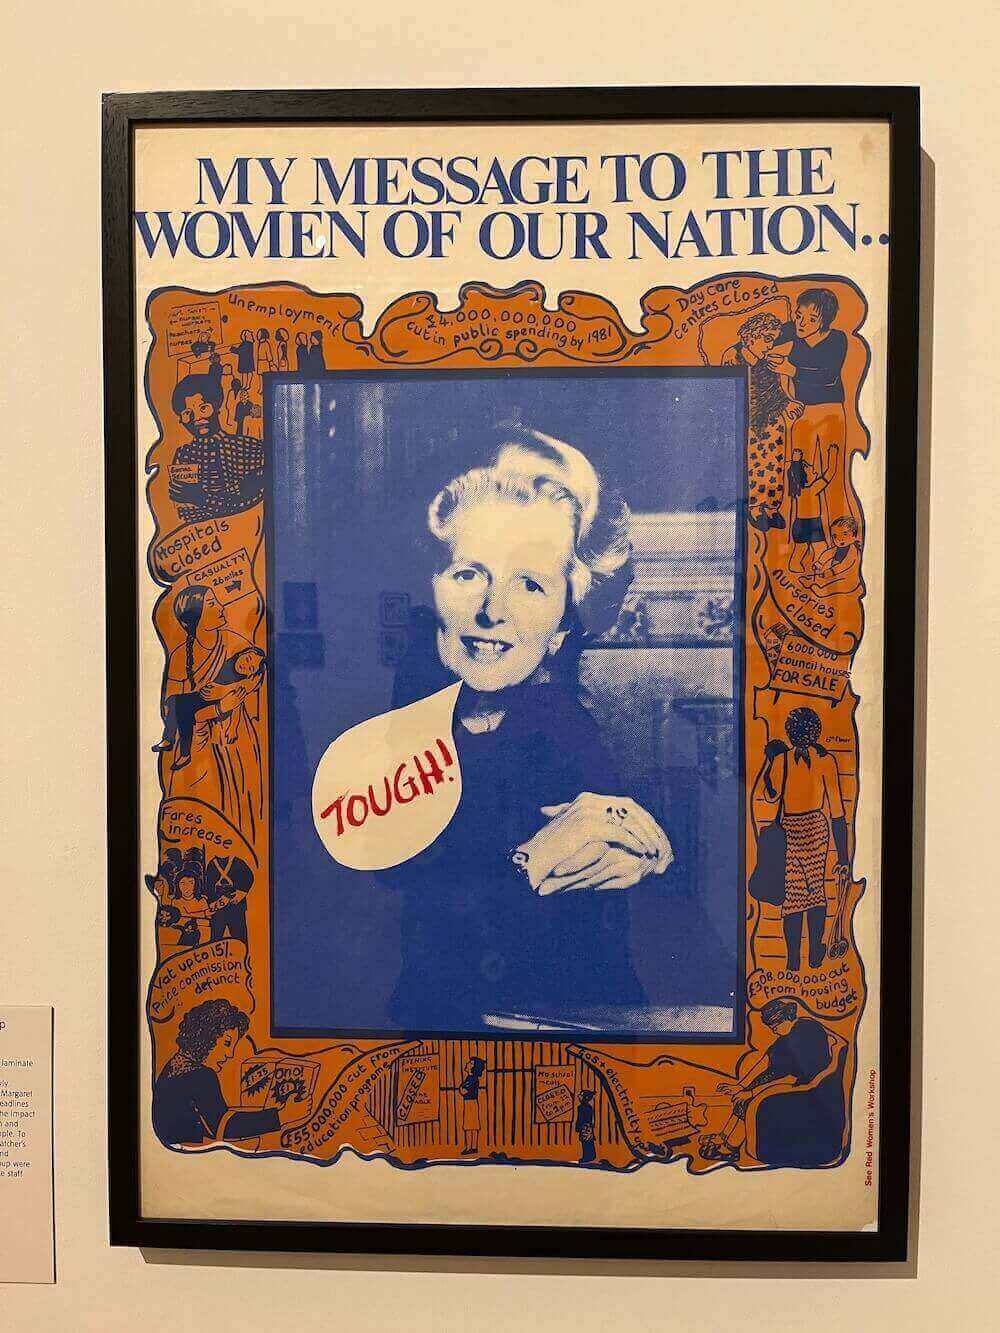 MY MESSAGE TO THE
WOMEN OF OUR NATION..
Unemployment
£4,000,000,000
cut in public spending by 1981
Day Care
centres closed
teachers
nurses
SOCIAL
SECURITY
Hospitals
closed
CASUALTY
26 miles
nurseries
closed
6000,000
council houses
FOR SALE
TOUGH!
Fares
increase
Vat up to 15%
Price commission
defunct
£308,000,000 cut
from housing
budget
£55,000,000 cut from
education programme
EVENING
INSTITUTE
CLOSED
No school
meals
CLOSED
Gas, electricity up
See Red Women's Workshop
p
laminate
Margaret
eadlines
he impact
and
ple. To
atcher's
nd
oup were
e staff